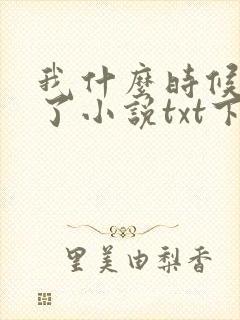 我什麼時候
了小説txt下
里美由梨香